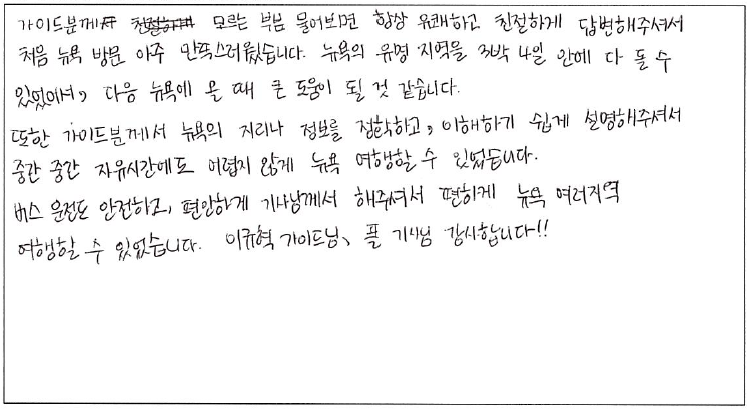 가이드분께 모르는 부분 물어보면 항상 유쾌하고 친절하게 답변해주셔서
처음 뉴욕 방문 아주 만족스러웠습니다. 뉴욕의 유명 지역을 3박 4일 안에 다 돌 수
있었어서, 다음 뉴욕에 올 때 큰 도움이 될 것 같습니다.
또한 가이드분께서 뉴욕의 지리나 정보를 정확하고, 이해하기 쉽게 설명해주셔서
중간 중간 자유시간에도 어렵지 않게 뉴욕 여행할 수 있었습니다.
버스 운전도 안전하고, 편안하게 기사님께서 해주셔서 편하게 뉴욕 여러지역
여행할 수 있었습니다. 이규혁 가이드님, 폴 기사님 감사합니다!!